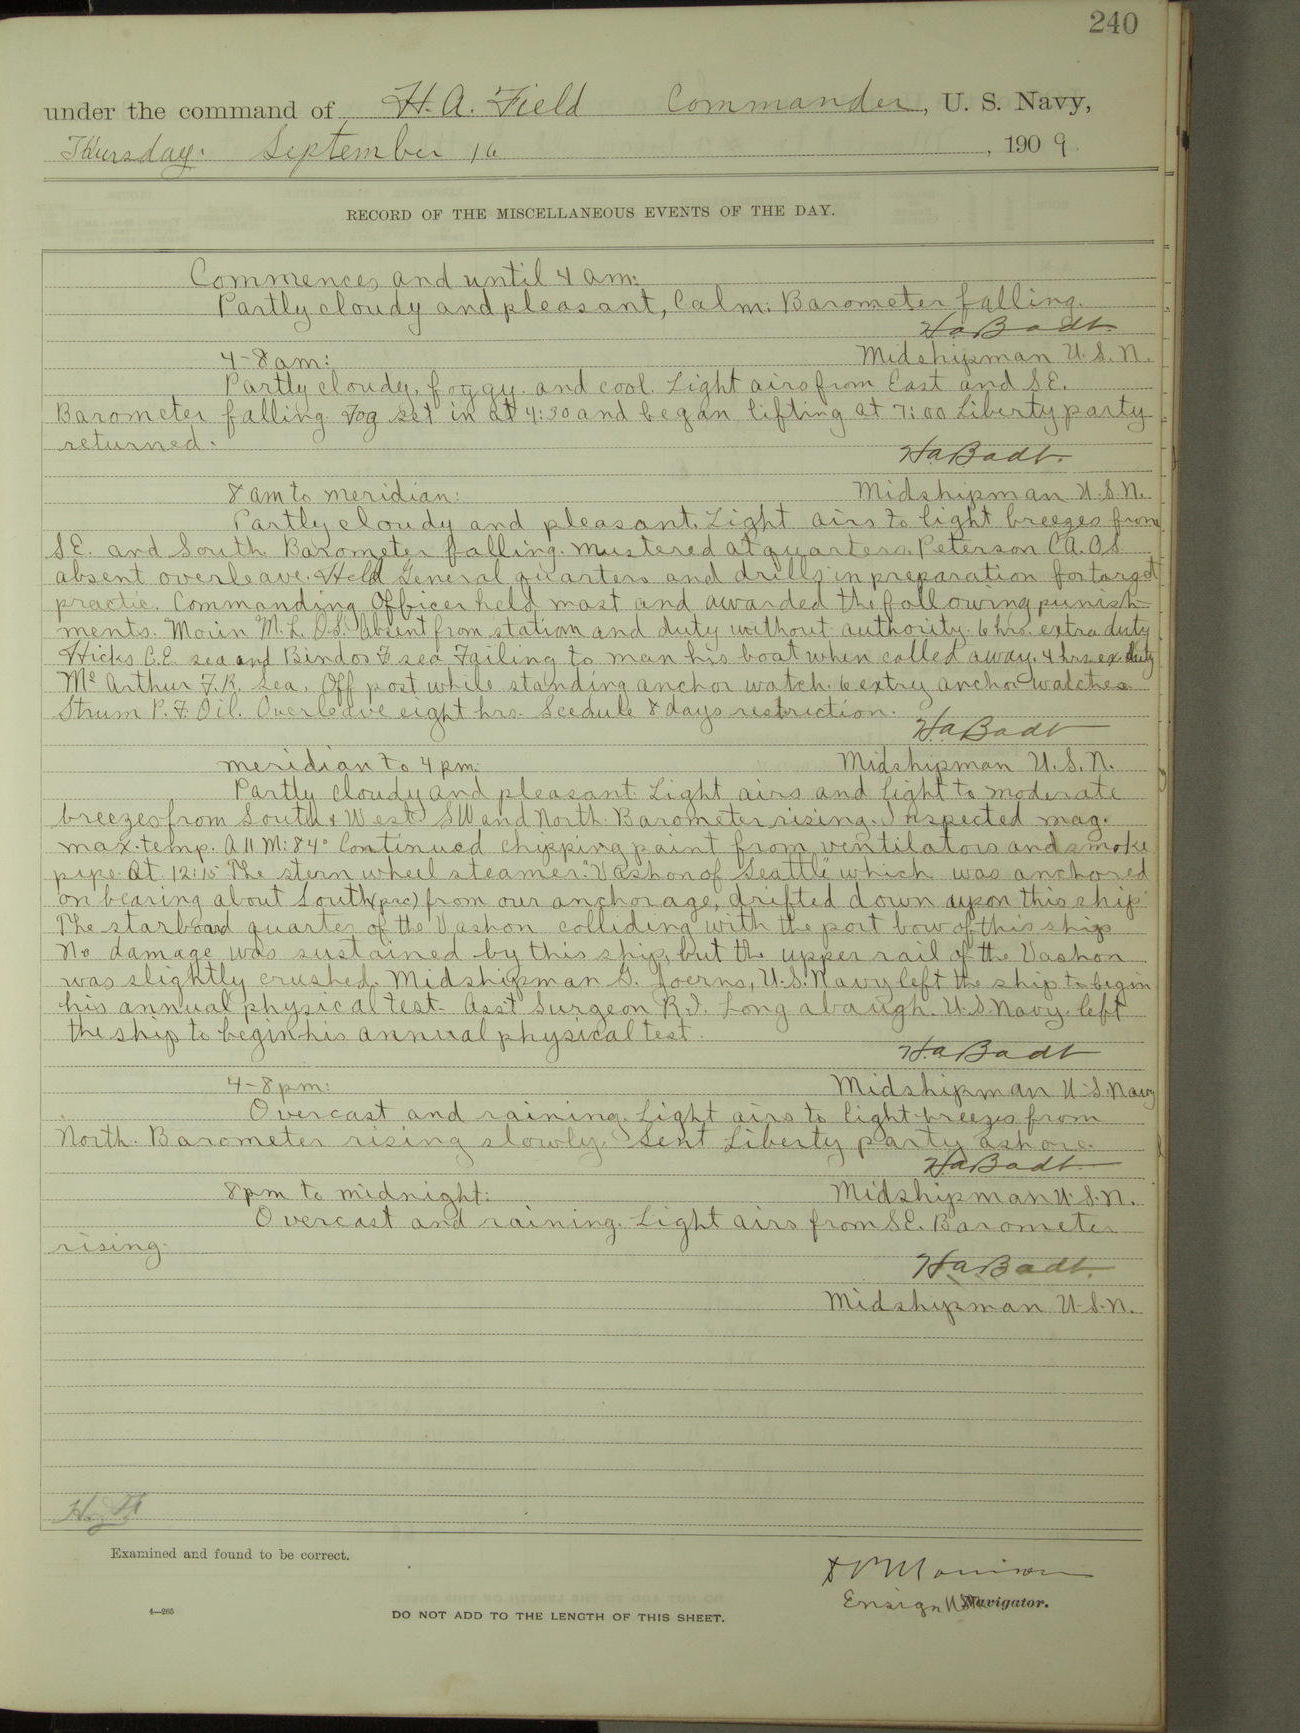 240
under the command of H. A. Field Commander, U. S. Navy,
Thursday. September 16, 1909.
RECORD OF THE MISCELLANEOUS EVENTS OF THE DAY.
Commences and until 4 am:
Partly cloudy and pleasant, Calm. Barometer falling.
Ha Badt.
4-8am: Midshipman U.S.N.
Partly cloudy, foggy. and cool. Light airs from East and S.E.
Barometer falling Fog set in at 4:30 and began lifting at 7:00 Liberty party
returned.
Ha Badt.
8 am to meridian: Midshipman U.S.N.
Partly cloudy and pleasant. Light airs to light breezes from
S.E. and South. Barometer falling. Mustered at quarters. Peterson C.A. O.S.
absent overleave. Held General quarters and drills in preparation for target
practic. Commanding Officer held mast and awarded the following punish-
ments. Morin M.L. O.S. absent from station and duty without authority. 6 hrs. extra duty
Hicks C.E. sea and Bindos F sea Failing to man his boat when called away. 4 hrs ex duty
Mc Arthur F.R. Sea. Off post while standing anchor watch. 6 extry anchor watches
Strum P.F. Oil. Overleave eight hrs. Scedule 8 days restriction.
Ha Badt
meridian to 4 pm: Midshipman U.S.N.
Partly cloudy and pleasant. Light airs and light to moderate
breezes from South & West SW and North. Barometer rising. Inspected mag.
max. temp. A11M: 84° Continued chipping paint from ventilators and smoke
pipe. At 12:15 The stern wheel steamer "Vashon of Seattle" which was anchored
on bearing about South (psc) from our anchorage, drifted down upon this ship
The starboard quarter of the Vashon colliding with the port bow of this ship
No damage was sustained by this ship, but the upper rail of the Vashon
was slightly crushed. Midshipman G. Joerns, U.S. Navy left the ship to begin
his annual physical test. Asst Surgeon R.I. Longabaugh. U.S. Navy. left
the ship to begin his annual physical test.
Ha Badt
4-8pm: Midshipman U.S. Navy
Overcast and raining. Light airs to light breezes from
North. Barometer rising slowly. Sent Liberty party ashore.
Ha Badt.
8pm to midnight: Midshipman U.S.N.
Overcast and raining. Light airs from S.E. Barometer
rising.
Ha Badt.
Midshipman U.S.N.
Examined and found to be correct.
Ensign USN Navigator.
4—265
DO NOT ADD TO THE LENGTH OF THIS SHEET.